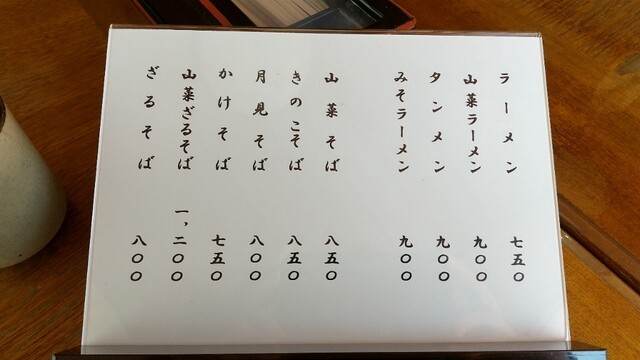 ラーメン 七五〇
山菜ラーメン 九〇〇
タンメン 九〇〇
みそラーメン 九〇〇
山菜そば 八五〇
きのこそば 八五〇
月見そば 八〇〇
かけそば 七五〇
山菜ざるそば 一、二〇〇
ざるそば 八〇〇